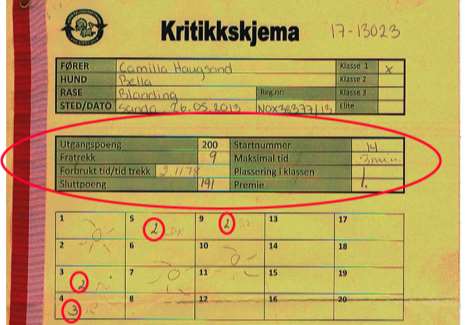 Kritikkskjema 17-13023
FØRER Camilla Haugsand Klasse 1 x
HUND Bella Klasse 2
RASE Blanding Reg.nnr Klasse 3
STED/DATO Sanda 26.05.2013 NOX36377/13 Elite
Utgangspoeng 200 Startnummer 14
Fratrekk 9 Maksimal tid 3min
Forbrukt tid/tid trekk 2.1178 Plassering i klassen 1.
Sluttpoeng 191 Premie
1 5 2 9 2 13 17
2 6 10 14 18
3 2 7 11 15 19
4 3 8 12 16 20